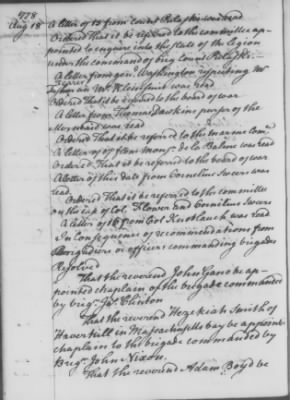 1778
Aug 18
A letter of 15 from Count Pulaski was read
Ordered That it be referred to the committee ap-
pointed to enquire into the state of the legion
under the command of brig Count Pulaski.
A letter from gen. Washington respecting Mr
and Mr Kleinsmit was read
Ordered That it be referred to the board of war
A letter from Thomas Dawkins purser of the
was read
Ordered That it be referred to the marine Com.
A letter of 17 from Monsr de la Balme was read
Ordered That it be referred to the board of war
A letter of this date from Cornelius Sweers was
read
Ordered That it be referred to the committee
on the cases of Col. Flower and Cornelius Sweers
A letter of 16 from Col Knoblauch was read
In Consequence of recommendations from
Brigadiers or officers commanding brigades
Resolved
That the reverend John Gano be ap-
pointed chaplain of the brigade commanded
by brigr Jas. Clinton
That the reverend Hezekiah Smith of
Haverhill in Massachusetts bay be appointed
chaplain to the brigade commanded by
Brigr John Nixon.
That the reverend Adam Boyd be